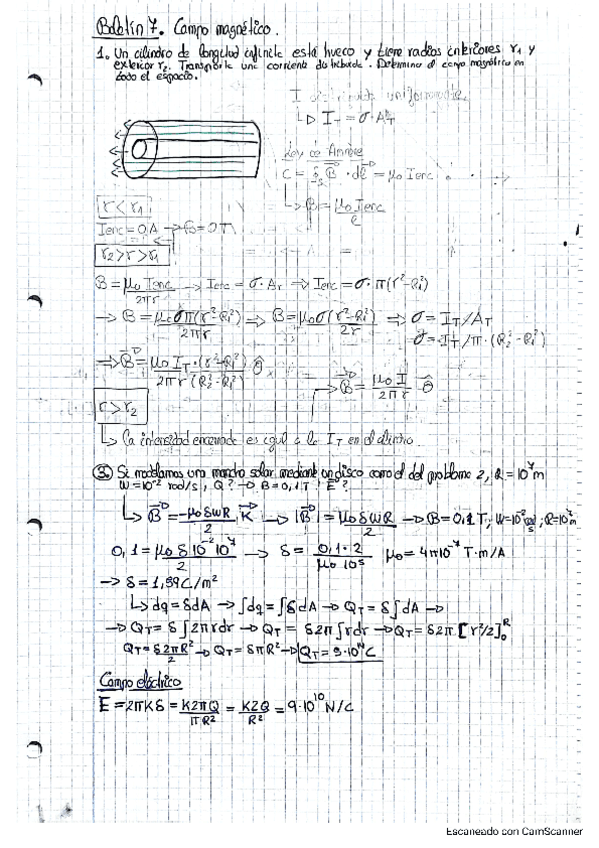 Boletín 7. Campo magnético.
1. Un cilindro de longitud infinita está hueco y tiene radios interiores r₁ y
exterior r₂. Transporta una corriente distribuida. Determina el campo magnético en
todo el espacio.
I distribuida uniformemente
↳ I_T = σ·A_T
Ley de Ampere
C = ∮ B⃗ · dl⃗ = μ₀ Ienc
↳ B = μ₀ Ienc / l
r < r₁
Ienc = 0A → B = 0T
r₂ > r > r₁
B = μ₀ Ienc / 2πr → Ienc = σ·Ar → Ienc = σ·π(r²-R₁²)
→ B = μ₀σπ(r²-R₁²) / 2πr ⇒ B = μ₀σ(r²-R₁²) / 2r ⇒ σ = I_T/A_T
σ = I_T/π·(R₂²-R₁²)
⇒ B⃗ = μ₀ I_T·(r²-R₁²) / 2πr (R₂²-R₁²) θ̂
→ B⃗ = μ₀ I / 2πr θ̂
r > r₂
↳ la intensidad encerrada es igual a la I_T en el cilindro
3. Si modelamos una mancha solar mediante un disco como el del problema 2, R = 10⁷ m
W = 10⁻² rad/s, Q? → B = 0,1 T, E⃗?
↳ B⃗ = -μ₀ δ w R / 2 K⃗ → |B⃗| = μ₀ δ w R / 2 → B = 0,1 T; W = 10⁻² rad/s; R = 10⁷ m
0,1 = μ₀ δ 10⁻² 10⁷ / 2 → δ = 0,1·2 / μ₀ 10⁵ μ₀ = 4π10⁻⁷ T·m/A
→ δ = 1,59 C/m²
↳ dq = δdA → ∫dq = ∫δdA → Q_T = δ∫dA →
→ Q_T = δ ∫2πrdr → Q_T = δ2π ∫rdr → Q_T = δ2π [r²/2]₀ᴿ
Q_T = δ2πR² / 2 → Q_T = δπR² → Q_T = 5·10¹⁴ C
Campo eléctrico
E = 2πKδ = K2πQ / πR² = K2Q / R² = 9·10¹⁰ N/C
Escaneado con CamScanner